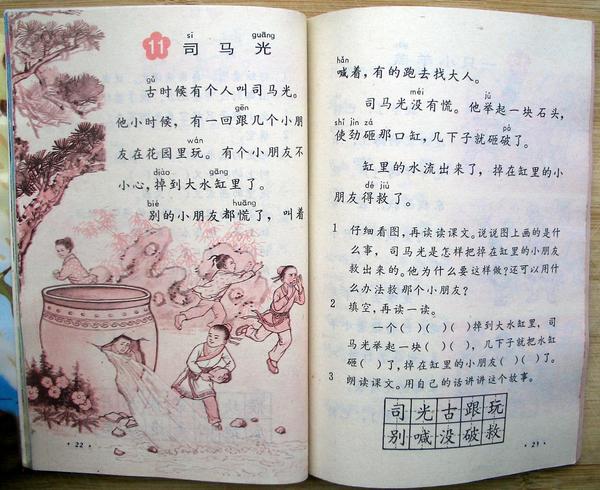 sī guāng
11 司马光
gǔ
古时候有个人叫司马光。
gēn
他小时候，有一回跟几个小朋
wán
友在花园里玩。有个小朋友不
diào gāng
小心，掉到大水缸里了。
bié huāng
别的小朋友都慌了，叫着
· 22 ·
hǎn
喊着，有的跑去找大人。
méi jǔ
司马光没有慌。他举起一块石头，
shǐ jìn zá pò
使劲砸那口缸，几下子就砸破了。
缸里的水流出来了，掉在缸里的小
dé jiù
朋友得救了。
1 仔细看图，再读读课文。说说图上画的是什
么事，司马光是怎样把掉在缸里的小朋友
救出来的。他为什么要这样做？还可以用什
么办法救那个小朋友？
2 填空，再读一读。
一个（ ）（ ）（ ）掉到大水缸里，司
马光举起一块（ ）（ ），几下子就把水缸
砸（ ）了，掉在缸里的小朋友（ ）（ ）了。
3 朗读课文。用自己的话讲讲这个故事。
司光古跟玩
别喊没破救